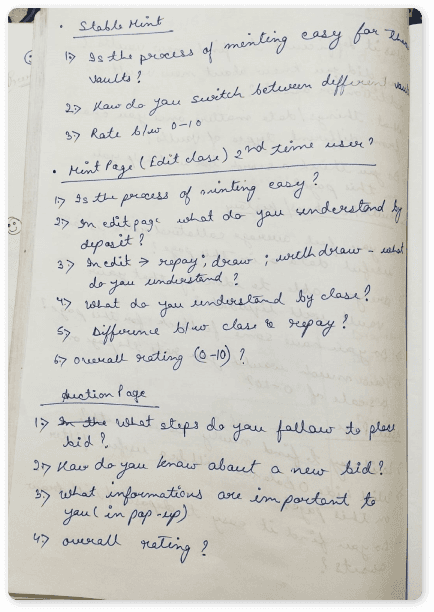 • Stable Mint
1> Is the process of minting easy for the
vaults?
2> How do you switch between different vaults
3> Rate b/w 0-10
• Mint Page (Edit close) 2nd time user?
1> Is the process of minting easy?
2> In edit page what do you understand by
deposit?
3> In edit → repay; draw; withdraw - what
do you understand?
4> What do you understand by close?
5> Difference b/w close & repay?
6> overall rating (0-10)?
Auction Page
1> In the what steps do you follow to place
bid?
2> How do you know about a new bid?
3> what informations are important to
you (in pop-up)
4> overall rating?